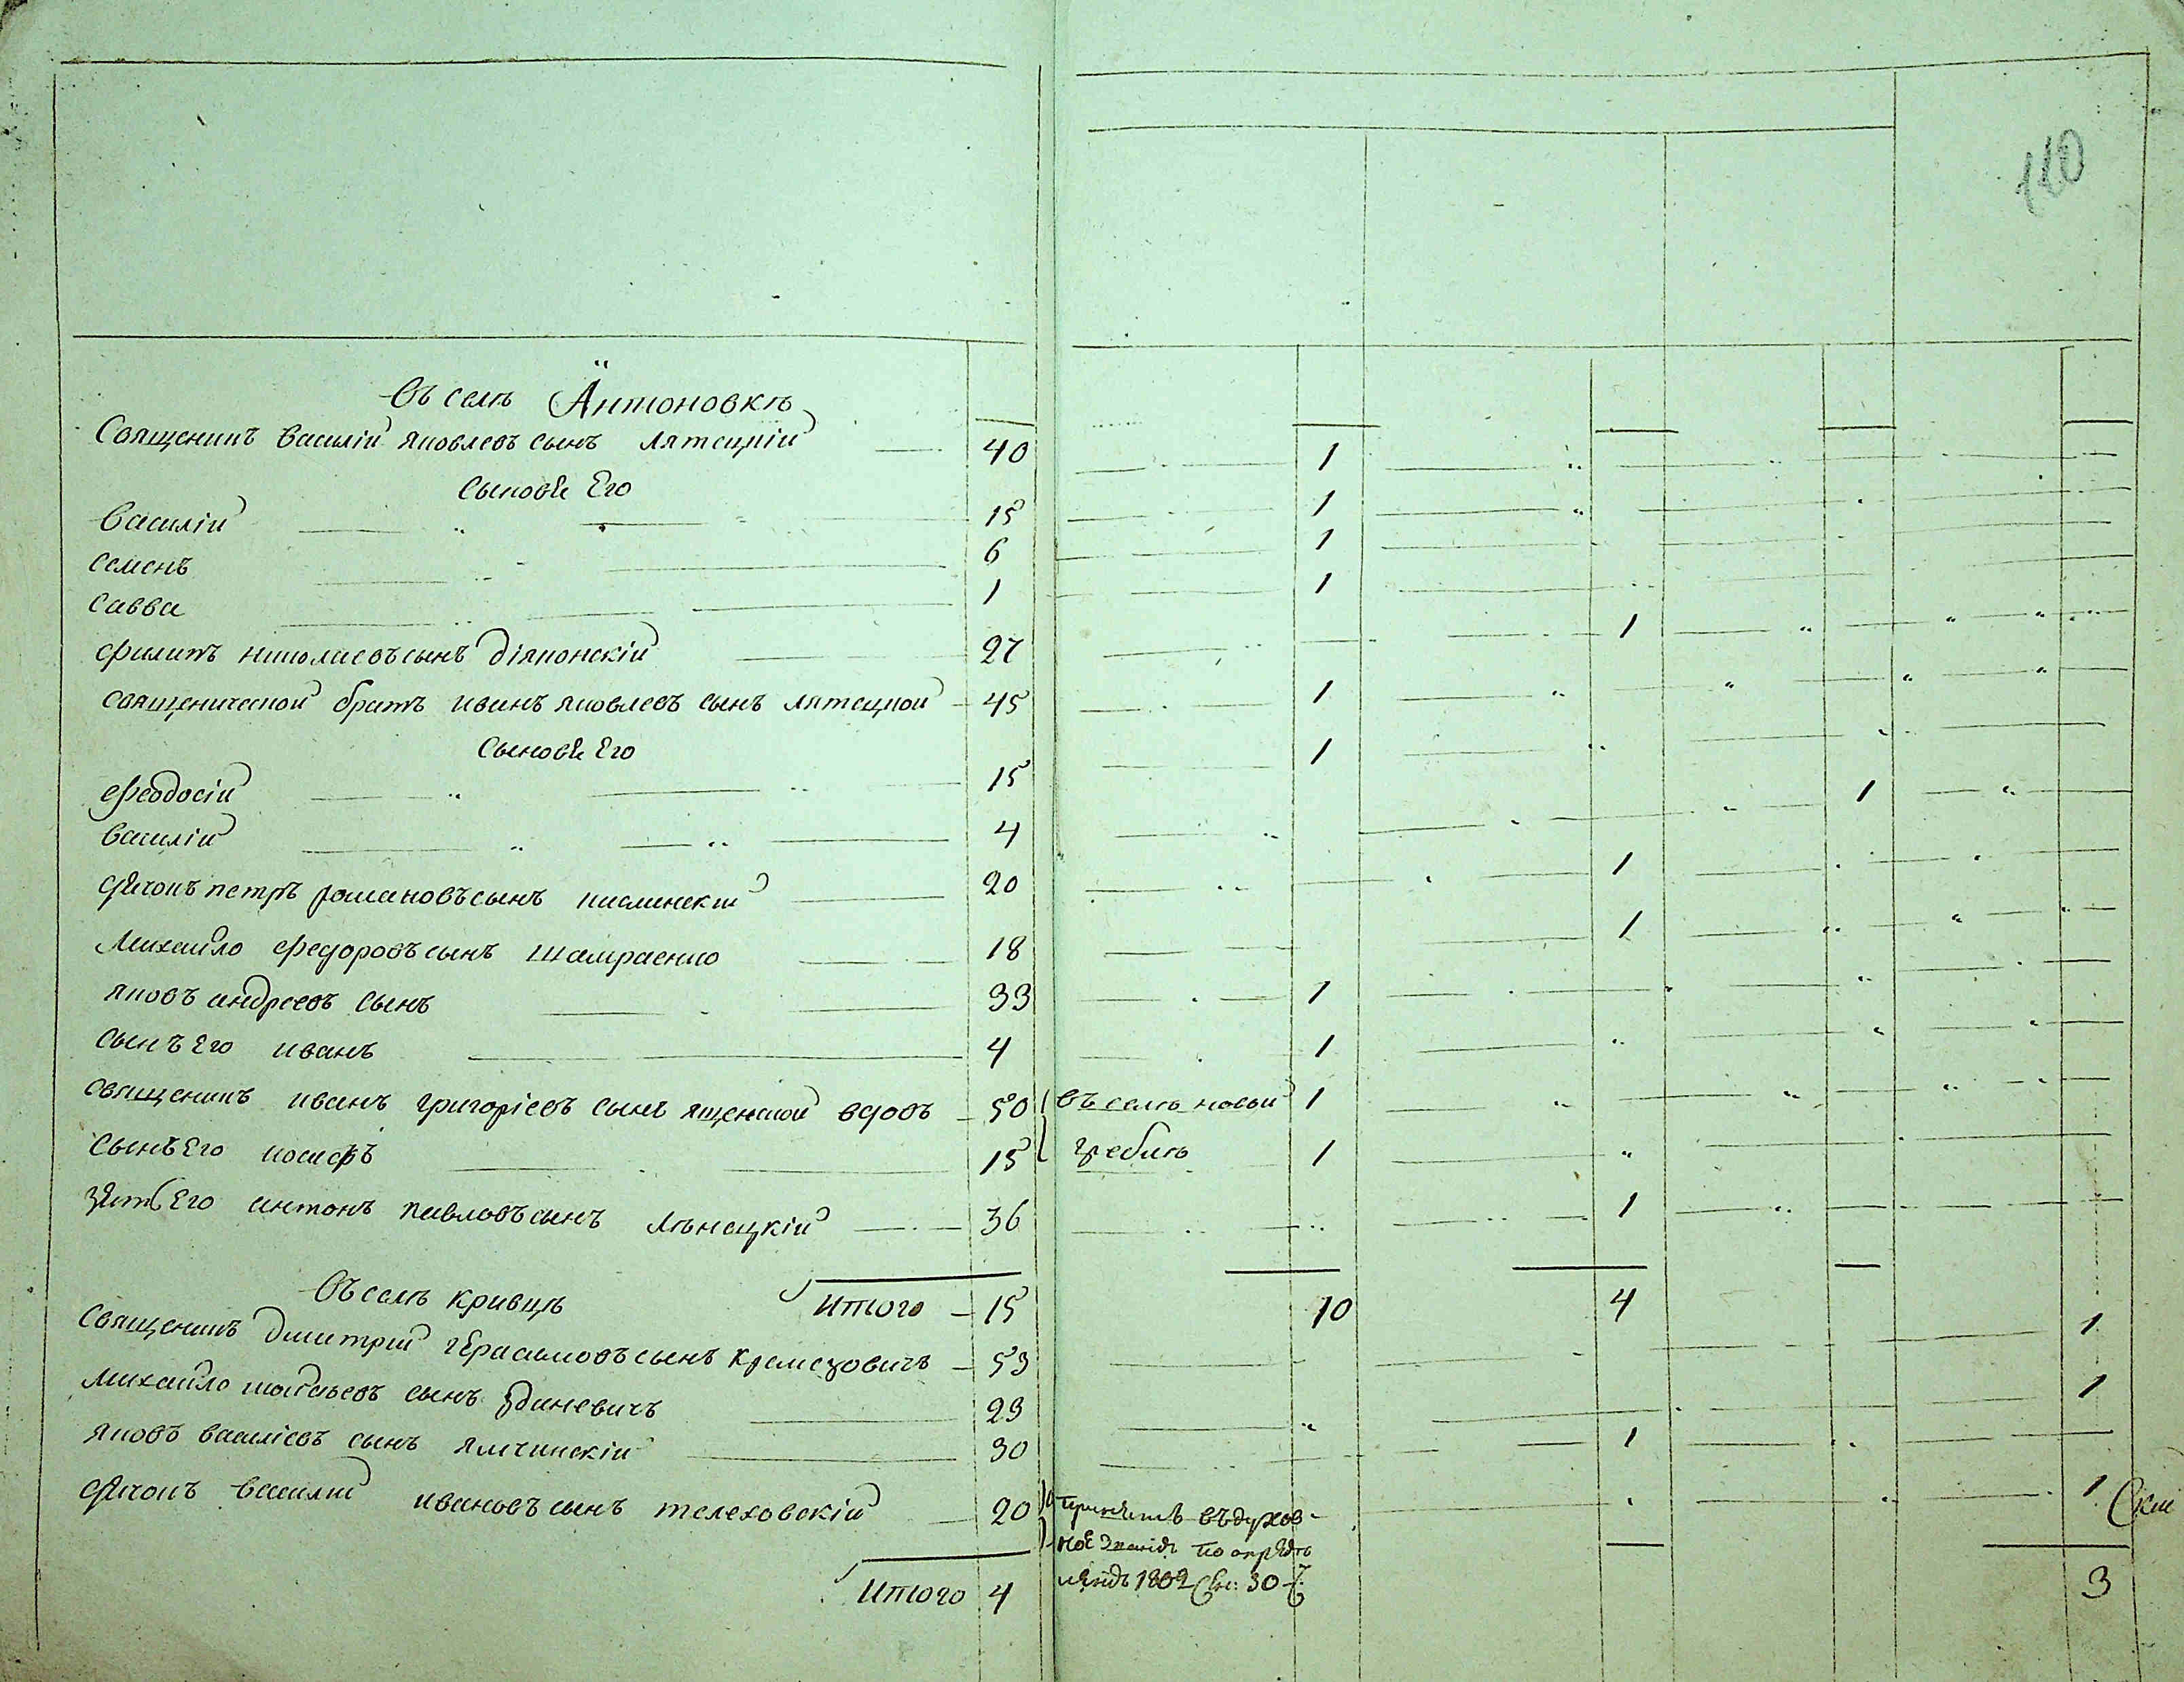 110
Въ селѣ Антоновкѣ
Священикъ Василій Яковлевъ сынъ Лятецкій 40 1
Сыновѣ Его
Василій 15 1
Семенъ 6 1
Савва 1 1
Филипъ Николаевъ сынъ Діяконскій 27 1
Священической братъ Иванъ Яковлевъ сынъ Лятецкой 45 1
Сыновѣ Его 1
Феодосій 15
Василій 4 1
Дячокъ Петръ Романовъ сынъ 20 1
Михайло Федоровъ сынъ Шамраенко 18 1
Яковъ Андреевъ сынъ 33 1
Сынъ Его Иванъ 4 1
Священикъ Иванъ Григоріевъ сынъ Ященской вдовъ 50 въ селѣ новой 1
Сынъ Его Иосифъ 15 гребли 1
Зять Его Антонъ Павловъ сынъ Лѣнецкій 36 1
Итого 15 10 4
Въ селѣ Кривцѣ
Священикъ Дмитрій Герасимовъ сынъ Кремезовичъ 53 1
Михайло сынъ Зданевичъ 23 1
Яковъ Василіевъ сынъ Ямчинскій 30 1
Дячокъ Василій Ивановъ сынъ Телеховскій 20 въ духов- 1
ное званіе по опредѣ
1802 30
Итого 4 3